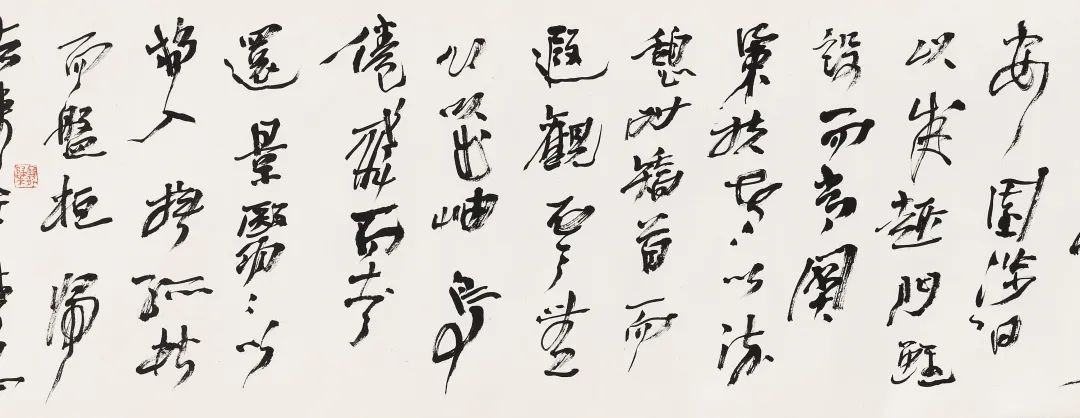 安園涉日
以成趣門雖
設而常關
策扶老以流
憩時矯首而
遐觀雲無
心以出岫鳥
倦飛而知
還景翳〻以
將入撫孤松
而盤桓歸